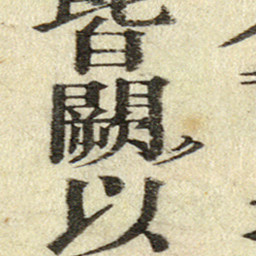 皆闕以